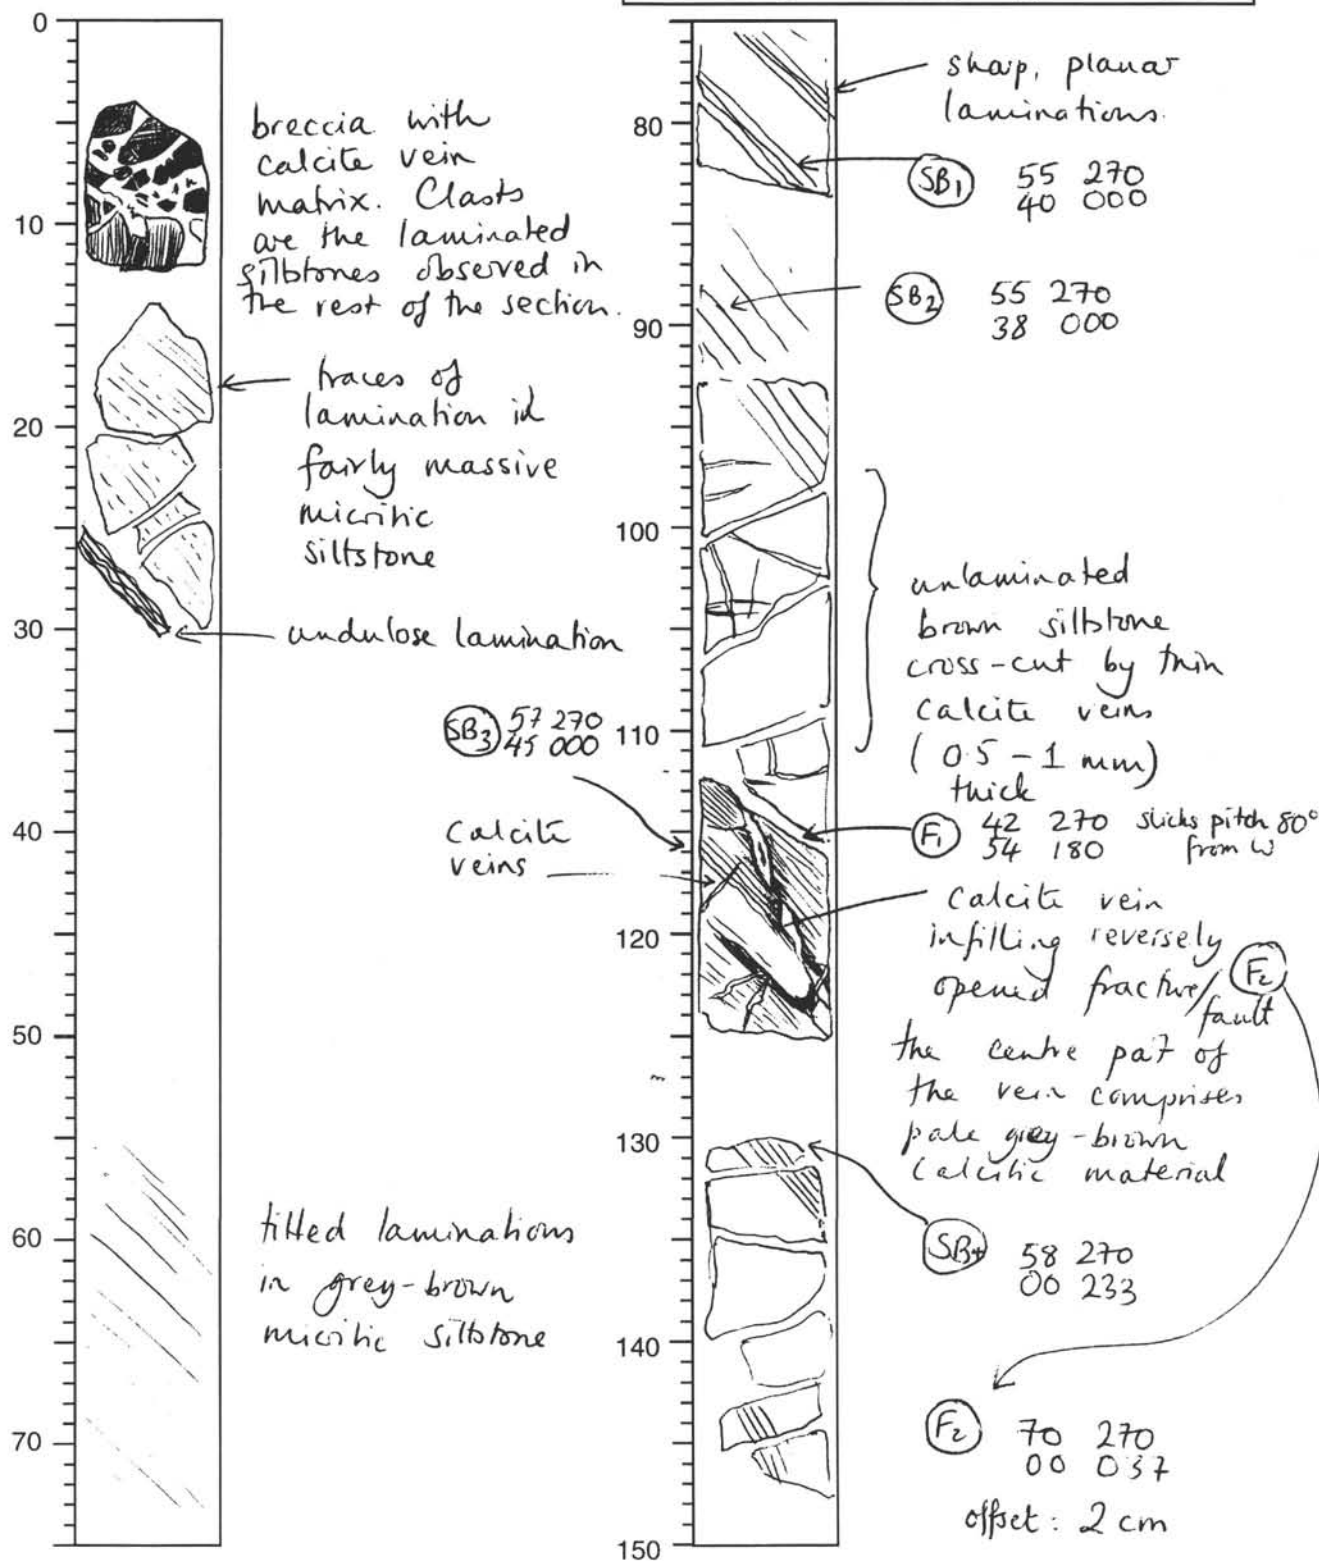 0
10
20
30
40
50
60
70
breccia with
calcite vein
matrix. Clasts
are the laminated
siltstones observed in
the rest of the section.
traces of
lamination in
fairly massive
micritic
siltstone
undulose lamination
SB3 57 270
45 000
calcite
veins
tilted laminations
in grey-brown
micritic siltstone
80
90
100
110
120
130
140
150
sharp, planar
laminations.
SB1 55 270
40 000
SB2 55 270
38 000
unlaminated
brown siltstone
cross-cut by thin
calcite veins
(0.5 - 1 mm)
thick
F1 42 270 slicks pitch 80°
54 180 from W
calcite vein
infilling reversely
opened fracture/ F2
fault
the centre part of
the vein comprises
pale grey-brown
calcitic material
SB4 58 270
00 233
F2 70 270
00 037
offset: 2 cm